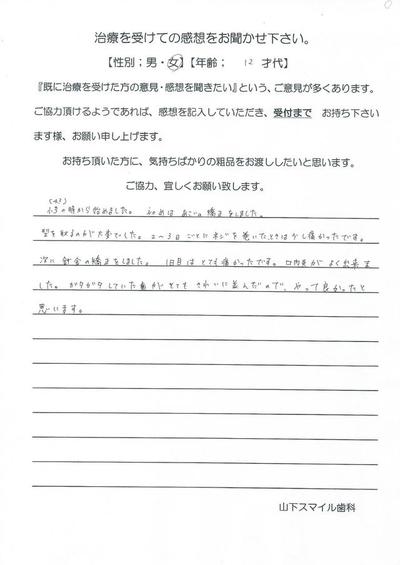 治療を受けての感想をお聞かせ下さい。
【性別；男・女】【年齢； 12 才代】
『既に治療を受けた方の意見・感想を聞きたい』という、ご意見が多くあります。
ご協力頂けるようであれば、感想を記入していただき、受付まで お持ち下さい
ます様、お願い申し上げます。
お持ち頂いた方に、気持ちばかりの粗品をお渡ししたいと思います。
ご協力、宜しくお願い致します。
小3の時から始めました。 初めは あごの矯正をしました。
型を取るのが大変でした。2〜3日ごとにネジを巻いたときは少し痛かったです。
次に針金の矯正をしました。1日目はとても痛かったです。口内炎がよく出来ま
した。ガタガタしていた歯がとてもきれいに並んだので、やって良かったと
思います。
山下スマイル歯科